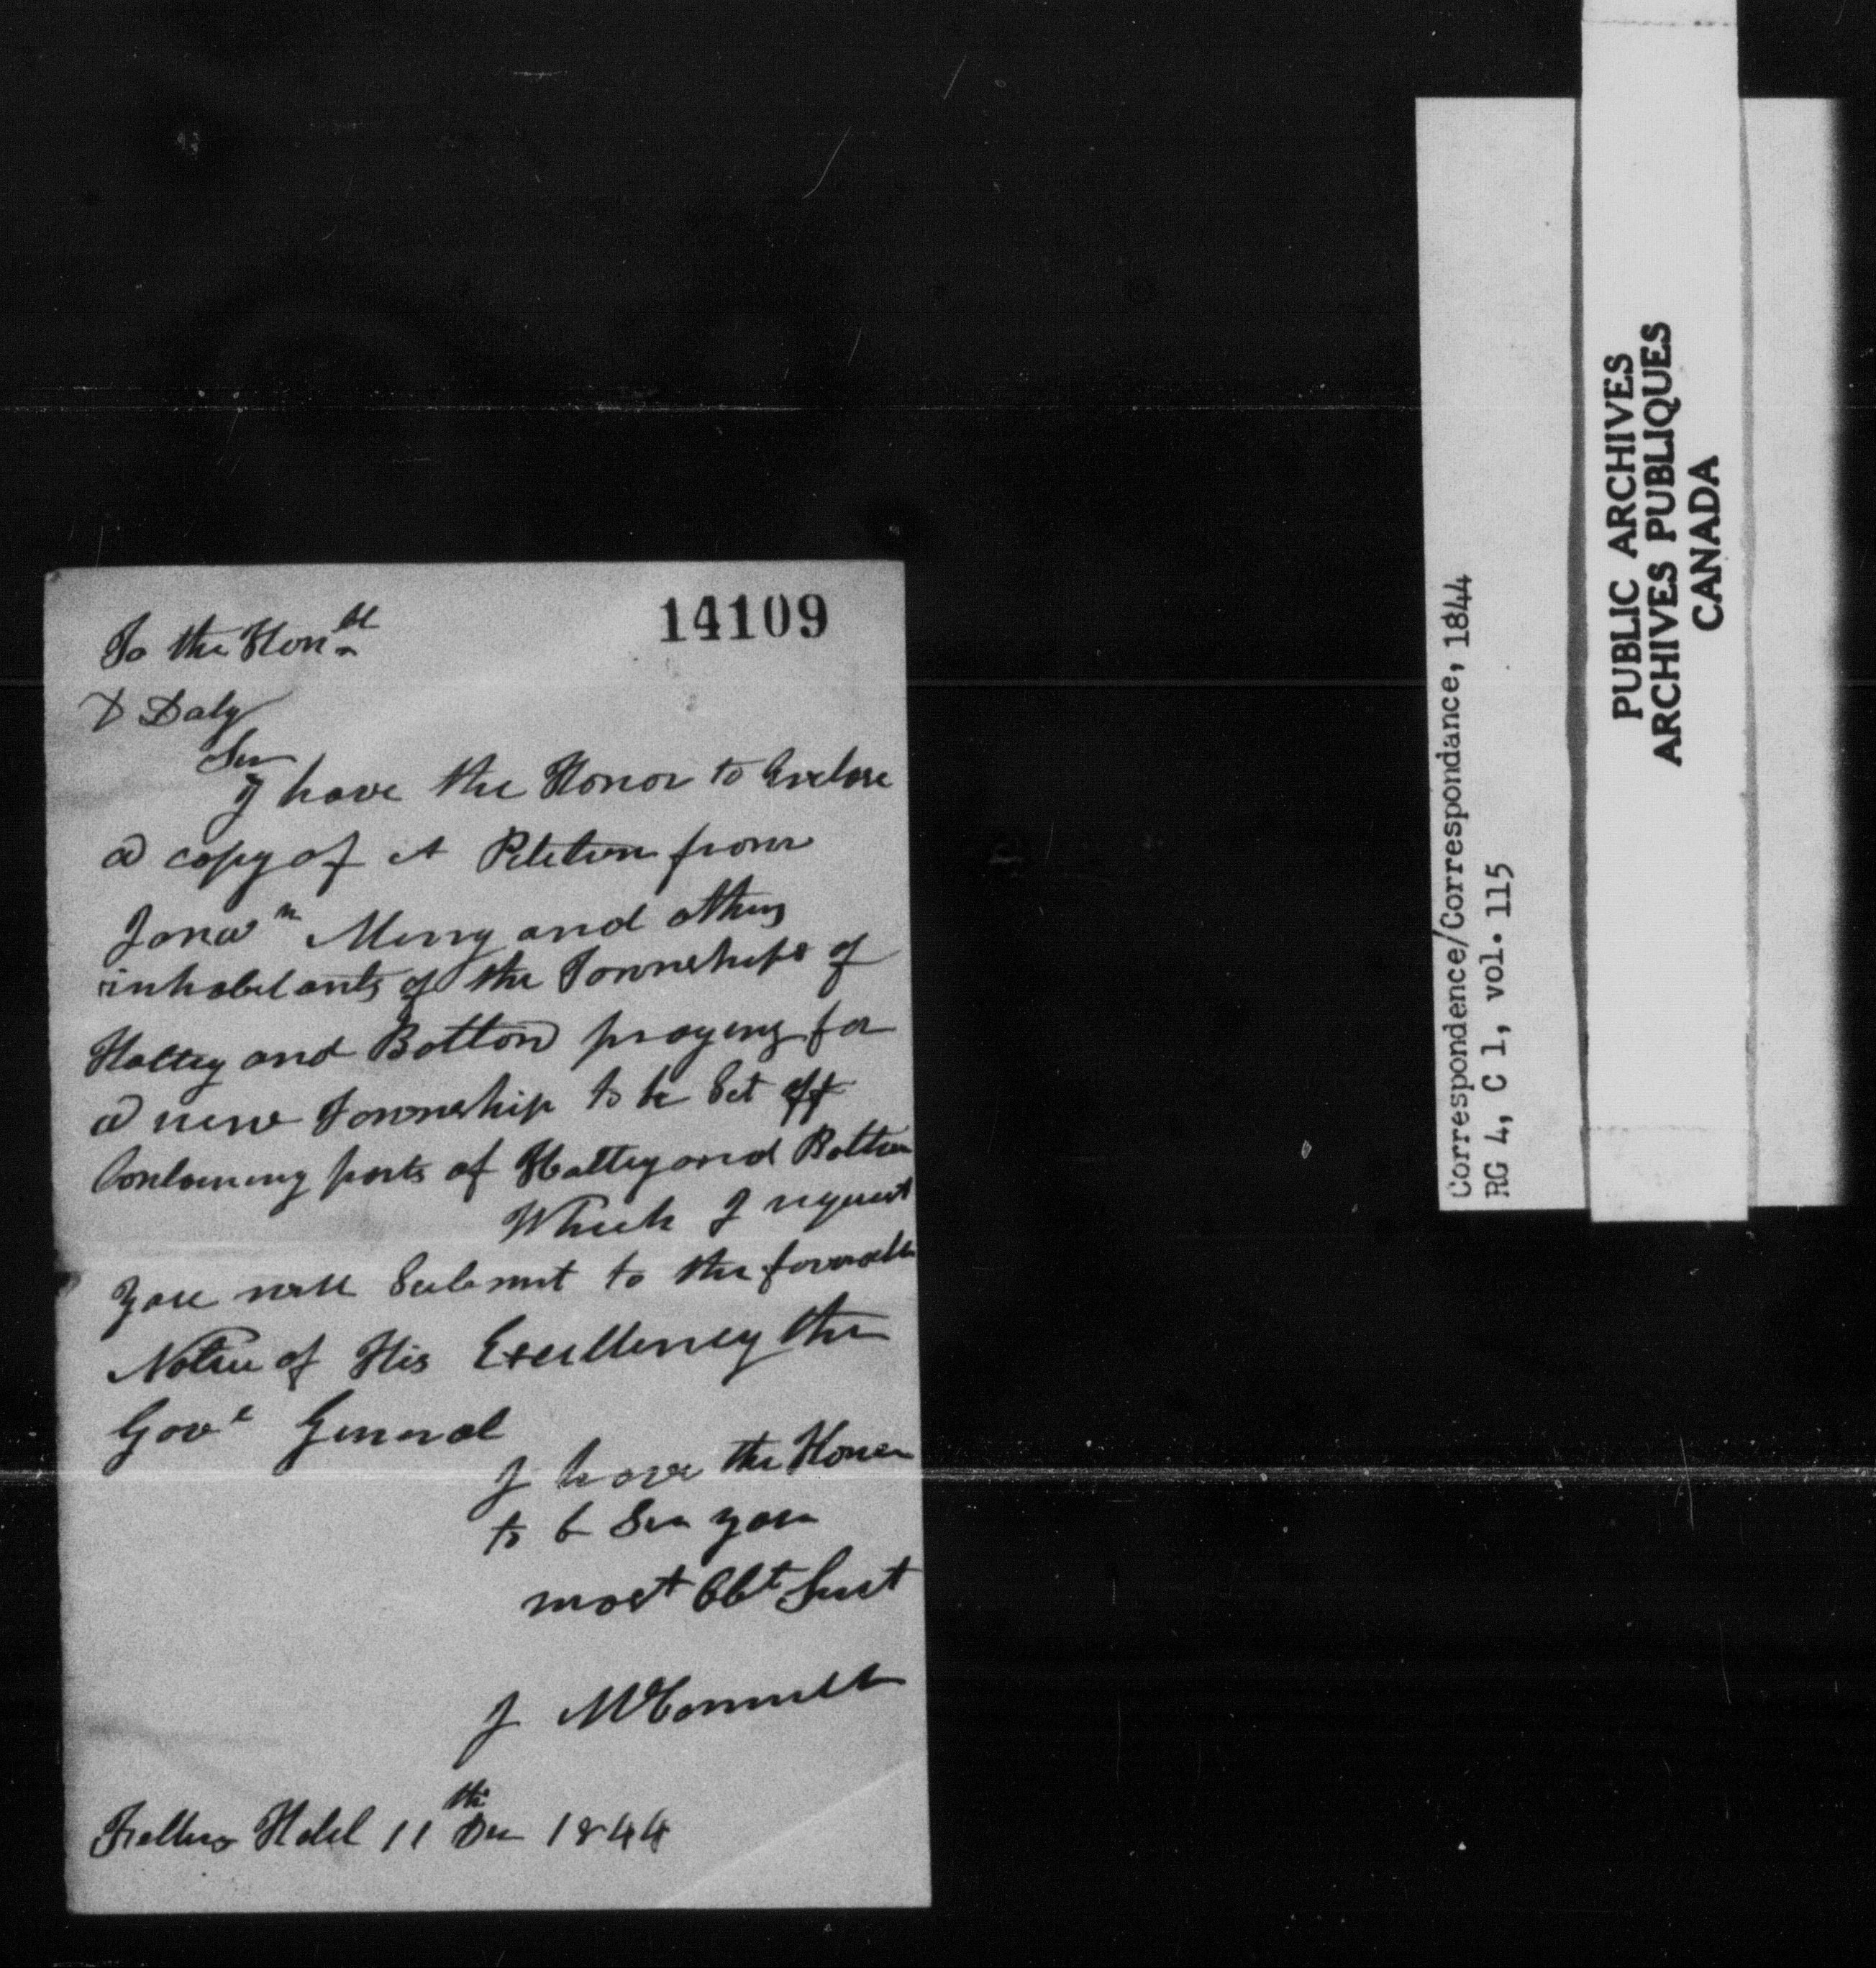 14109
To the Honble
D Daly
Sir
I have the Honor to Enclose
a copy of A Petition from
Jonan Merry and others
inhabitants of the Townships of
Hatley and Bolton praying for
a new Township to be Set off
Containing parts of Hatley and Bolton
Which I request
you will Submit to the favorable
Notice of His Excellency the
Govr General
I have the Honor
to b Sir your
most Obt Servt
J McConnell
Hotel 11th Dec 1844
Correspondence/Correspondance, 1844
RG 4, C 1, vol. 115
PUBLIC ARCHIVES
ARCHIVES PUBLIQUES
CANADA